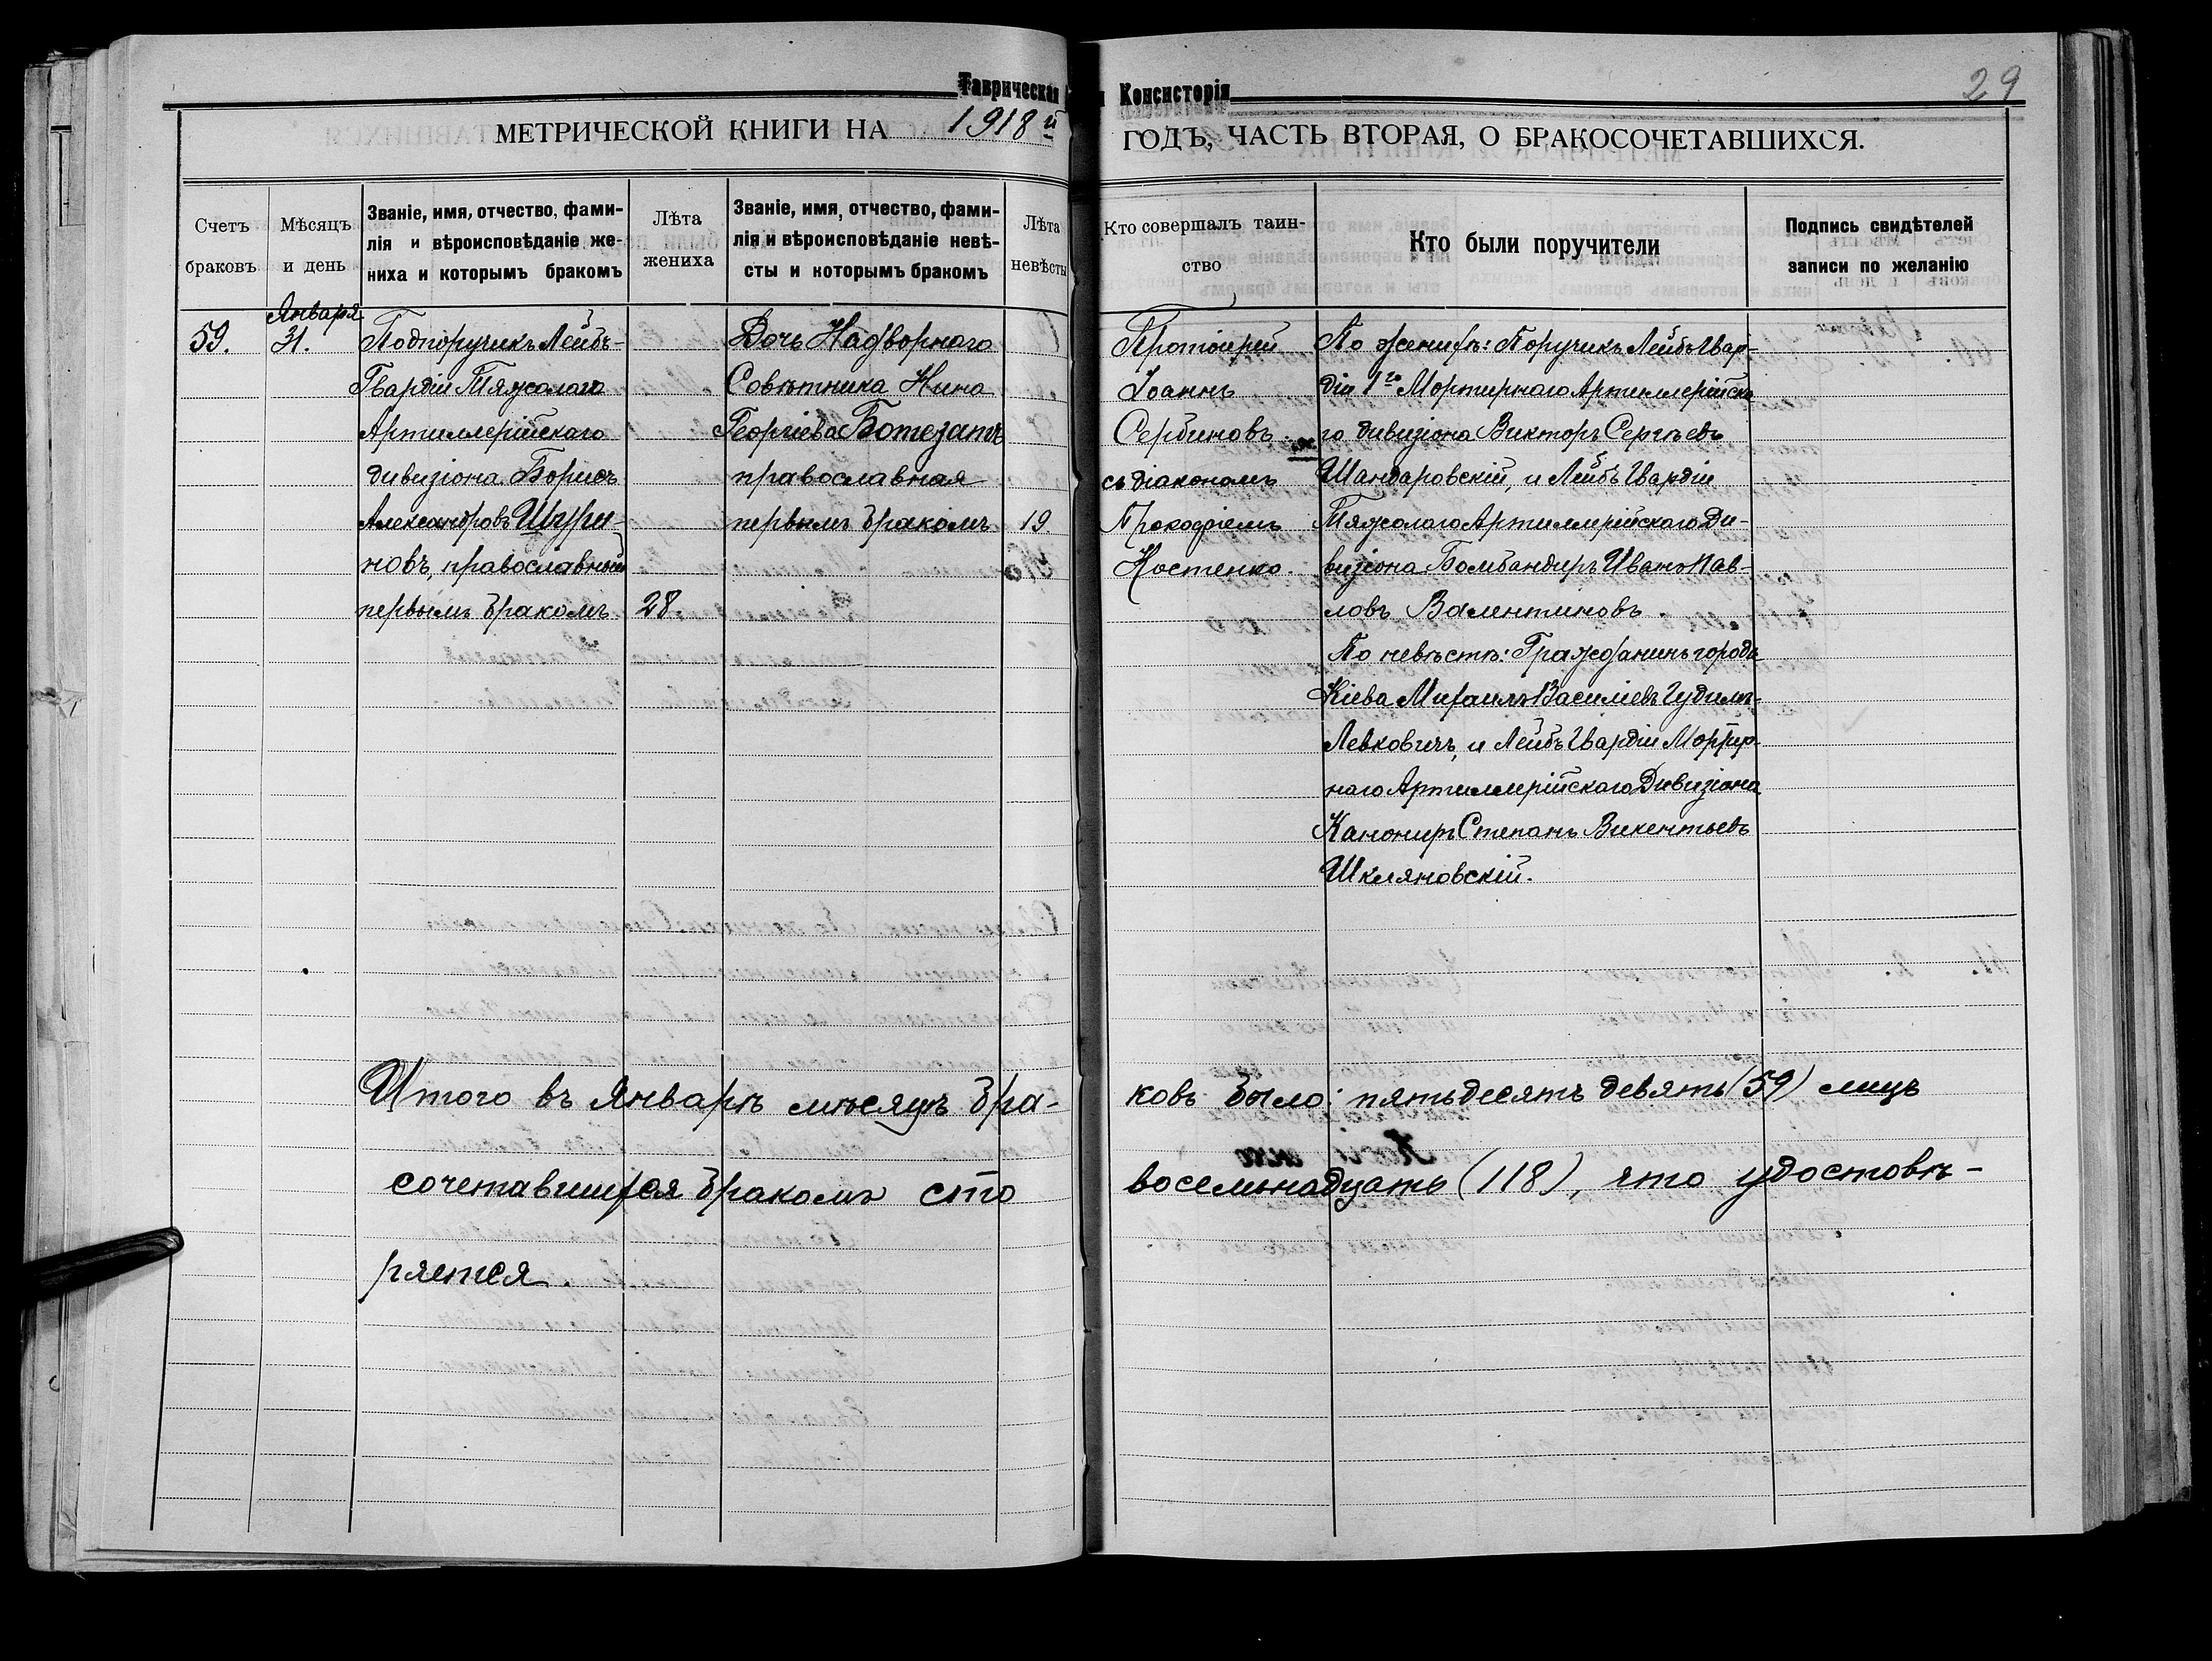 Таврическая Консисторія
29
МЕТРИЧЕСКОЙ КНИГИ НА 1918й ГОДЪ, ЧАСТЬ ВТОРАЯ, О БРАКОСОЧЕТАВШИХСЯ.
Счетъ
браковъ
Мѣсяцъ
и день
Званіе, имя, отчество, фами-
лія и вѣроисповѣданіе же-
ниха и которымъ бракомъ
Лѣта
жениха
Званіе, имя, отчество, фами-
лія и вѣроисповѣданіе невѣ-
сты и которымъ бракомъ
Лѣта
невѣсты
Кто совершалъ таин-
ство
Кто были поручители
Подпись свидѣтелей
записи по желанію
59.
Января
31.
Подпоручикъ Лейбъ-
Гвардіи Тяжолаго
Артиллерійскаго
дивизіона Борисъ
Александровъ Шури-
новъ, православный
первымъ бракомъ
28.
Дочь Надворнаго
Совѣтника Нина
Георгіева Ботезатъ
православная
первымъ бракомъ
19.
Протоіерей
Іоаннъ
Сербиновъ
съ діакономъ
Прокофіемъ
Костенко.
По женихѣ: Поручикъ Лейбъ Гвар-
діи 1го Мортирнаго Артиллерійска-
го дивизіона Викторъ Сергѣевъ
Шандаровскій, и Лейбъ Гвардіи
Тяжолаго Артиллерійскаго Ди-
визіона Бомбандиръ Иванъ Пав-
ловъ Валентиновъ.
По невѣстѣ: Гражданинъ города
Кіева Михаилъ Василіевъ Гудимъ-
Левковичъ, и Лейбъ Гвардіи Мортир-
наго Артиллерійскаго Дивизіона
Канониръ Степанъ Викентьевъ
Шкляновскій.
Итого въ Январѣ мѣсяцѣ бра-
ковъ было: пятьдесятъ девять (59) лицъ
сочетавшихся бракомъ сто
восемьнадцать (118), что удостовѣ-
ряется.